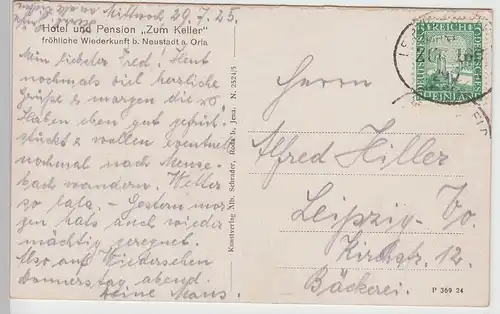 Mittwoch, 29.7.25.
Hotel und Pension „Zum Keller"
fröhliche Wiederkunft b. Neustadt a. Orla
Mein lieber Fred. Heut
nochmals viel herzliche
Grüße & morgen die
Haben eben gut gefrüh-
stückt & wollen eventuell
nochmal nach Meuse-
bach wandern. Wetter
so lala. - Gestern mor-
gen hats auch wieder
mächtig geregnet.
Also auf Wiedersehen
Donnerstag abend.
Deine Maus.
Kunstverlag Alb. Schrader, Roda b. Jena. N. 2524/5
Herrn
Alfred Hiller
Leipzig-Vo.
Kirchstr. 12.
Bäckerei.
P 369 24
DEUTSCHES REICH